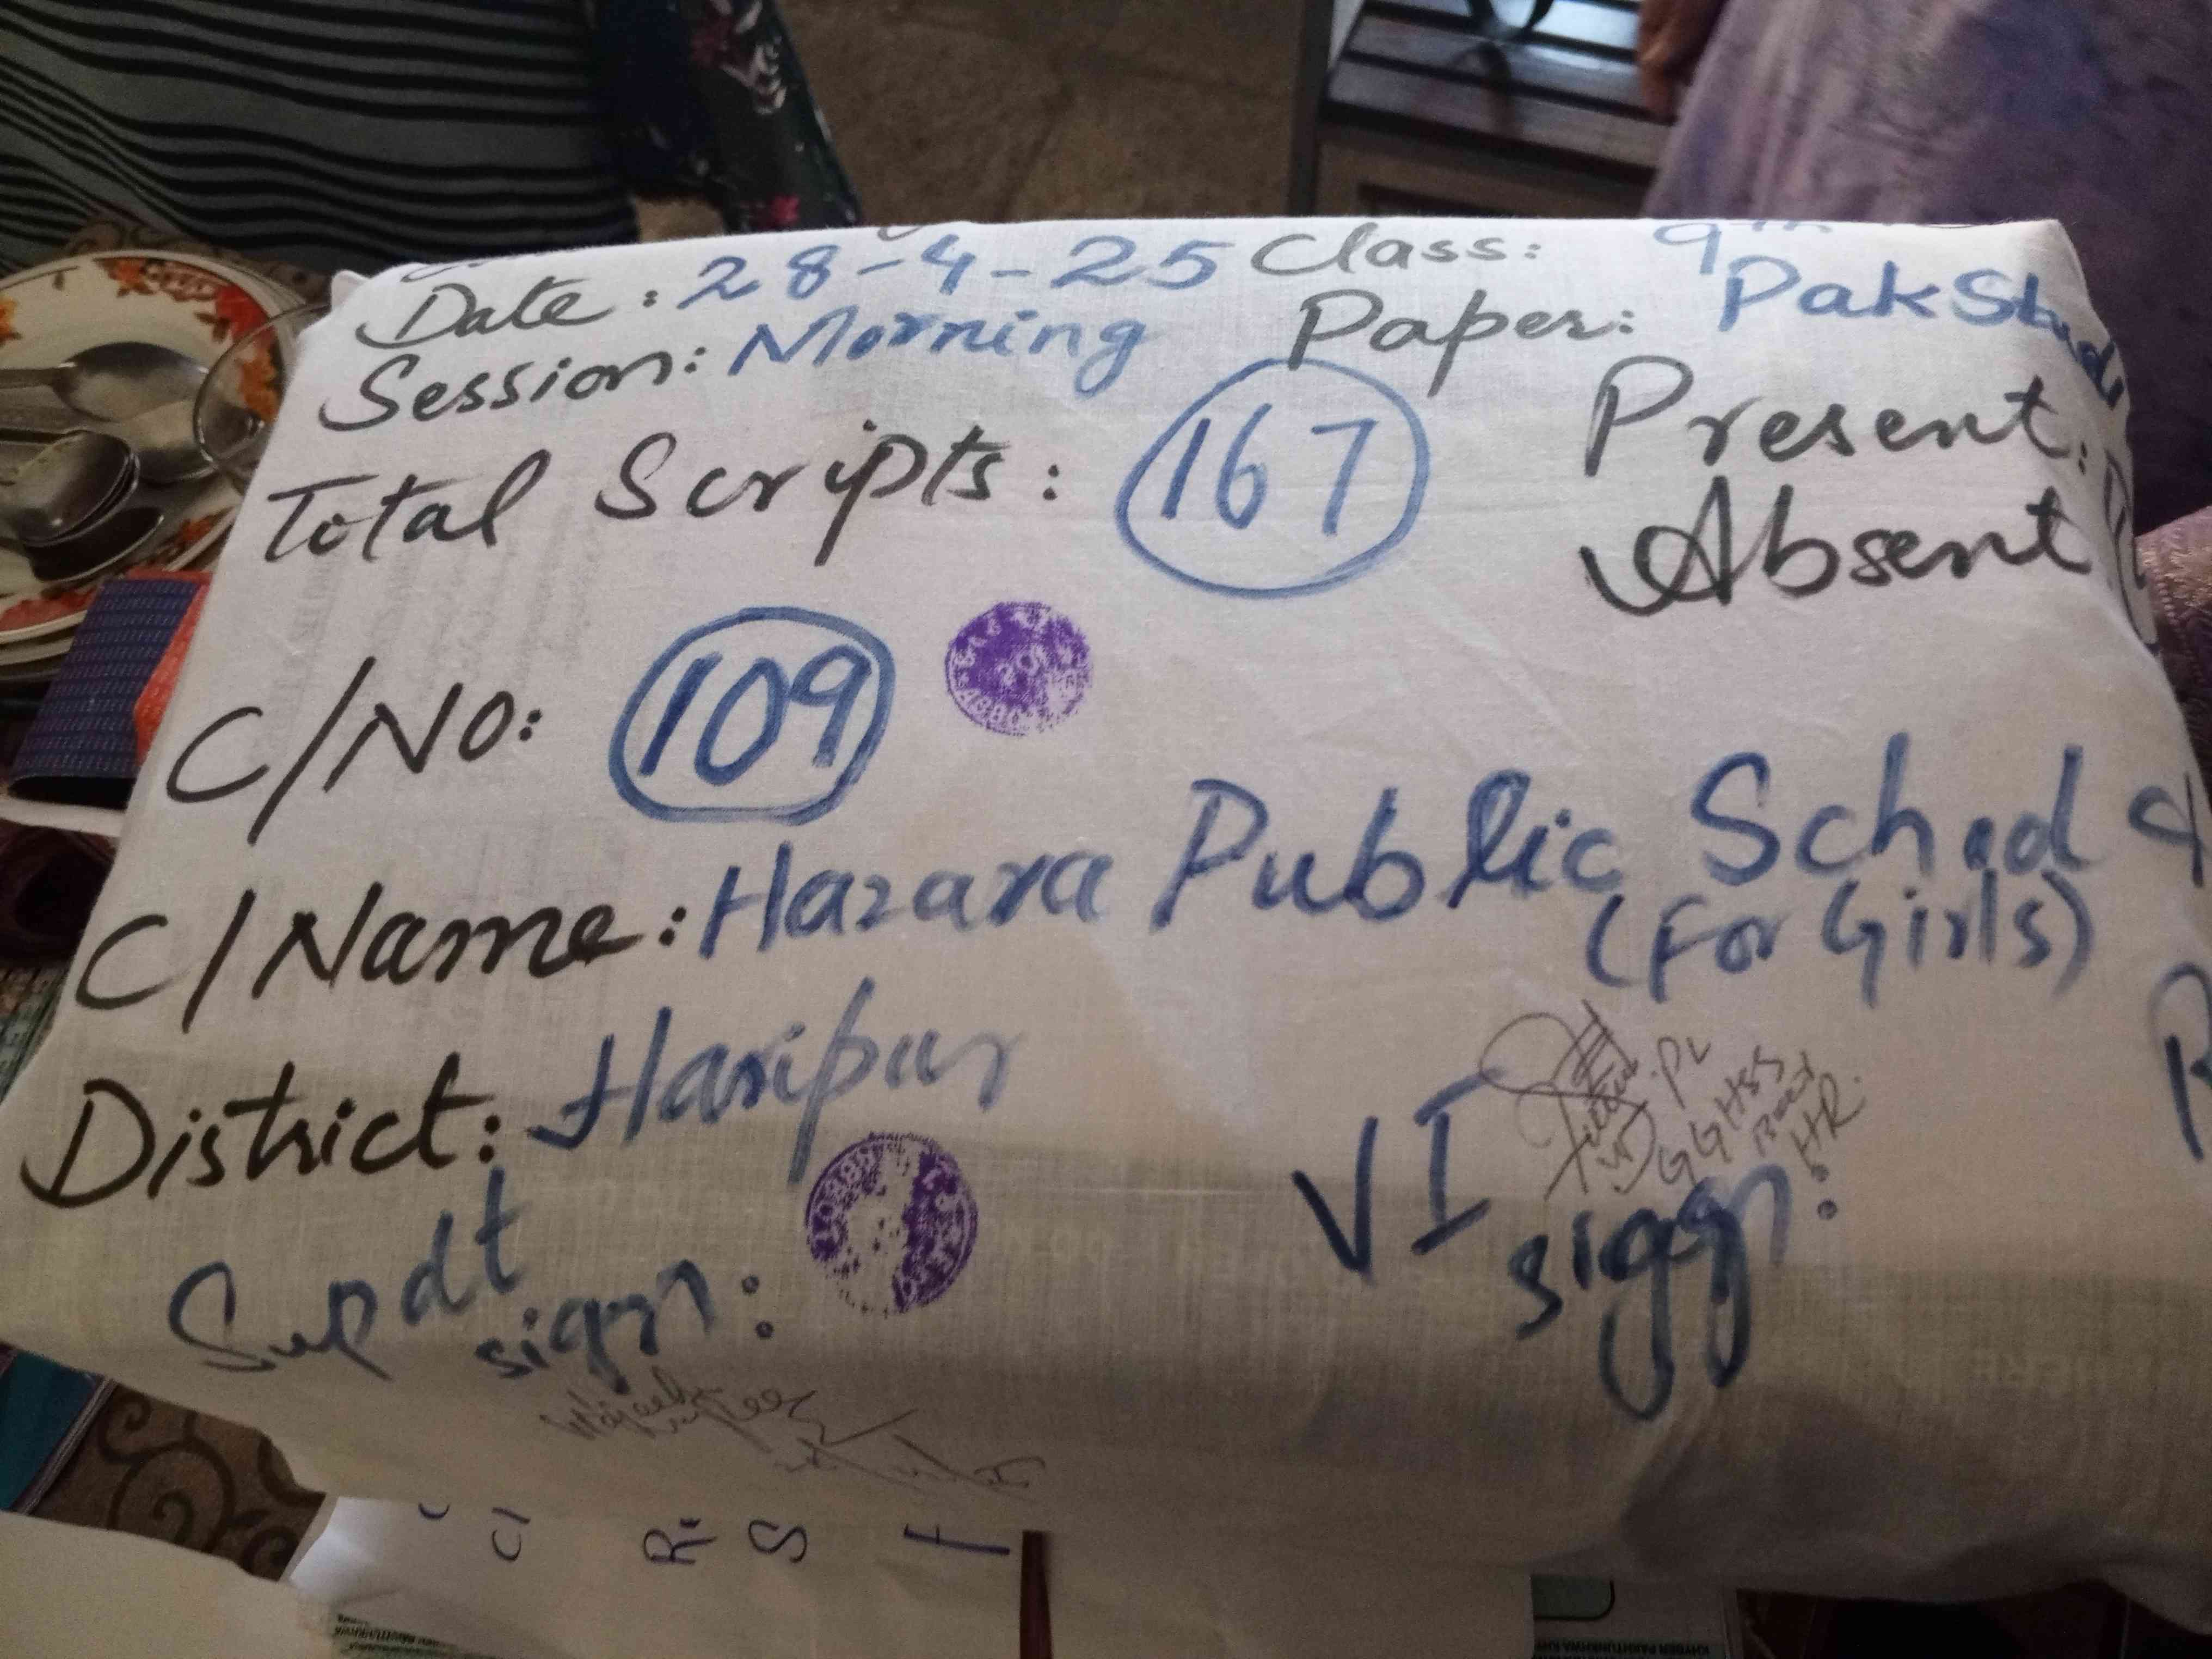 Date: 28-4-25 Class: 9th
Session: Morning Paper: Pak Stud
Total Scripts: 167 Present:
Absent
C/No: 109
C/Name: Hazara Public School &
(For Girls)
District: Haripur
Supdt sign:
VI sign:
PL
GGHSS
HR.
CI
S